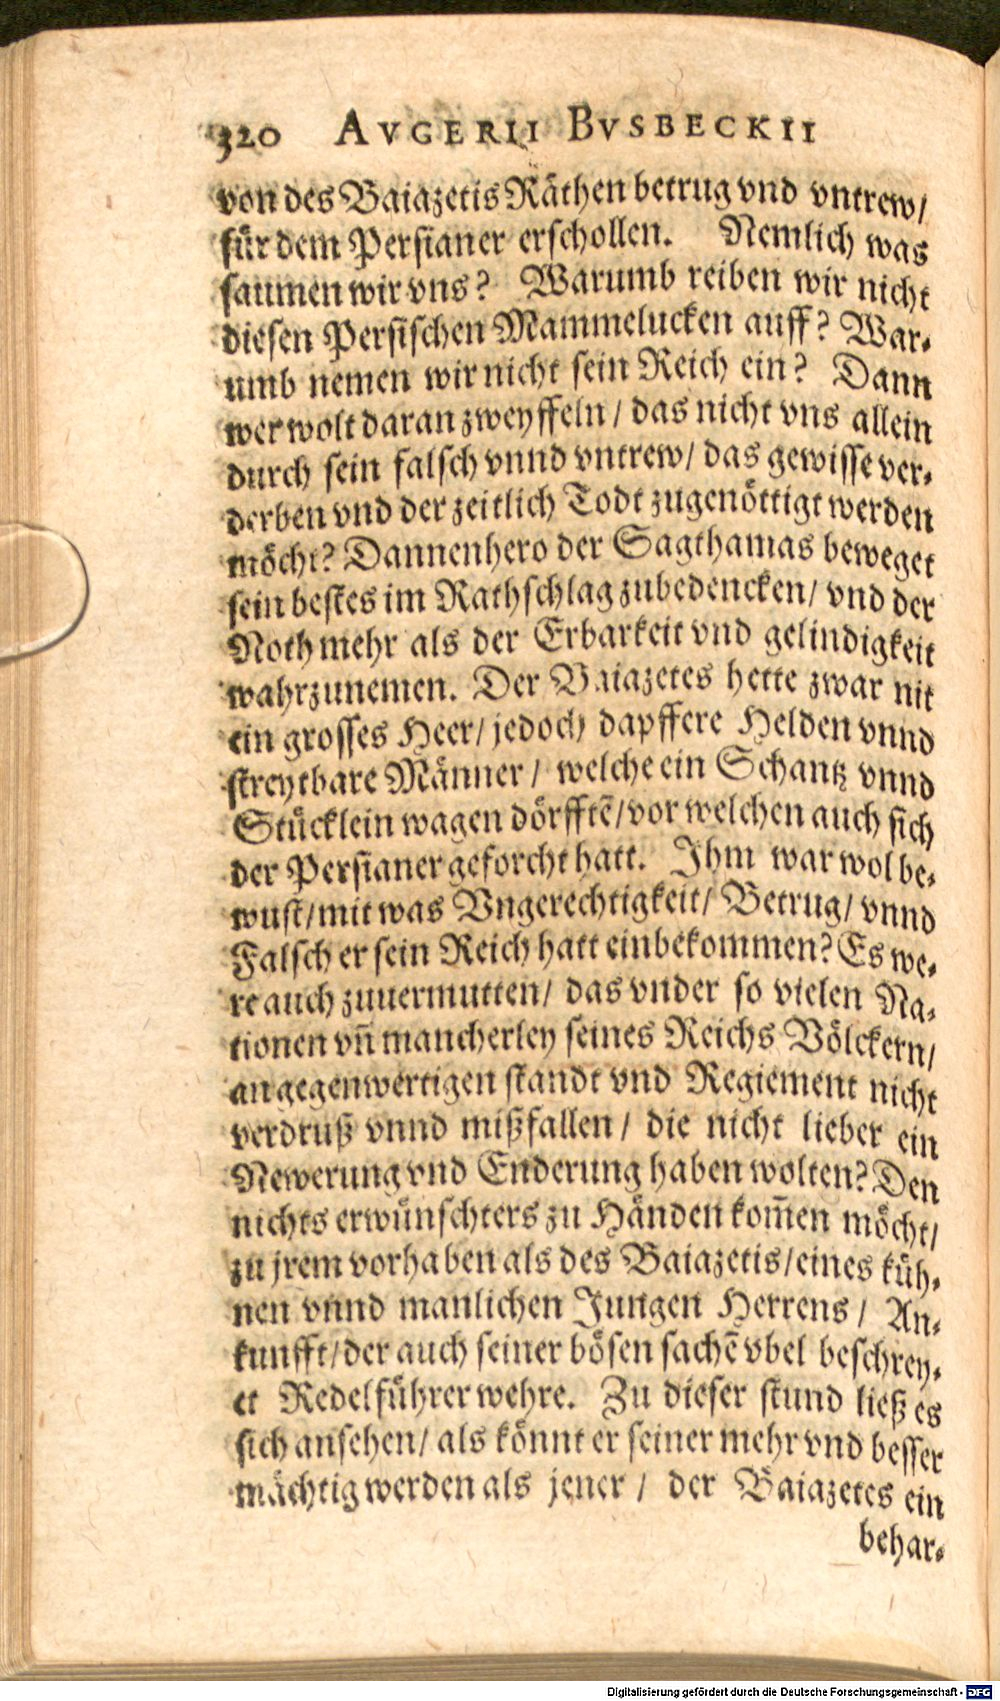 320 AVGERII BVSBECKII
von des Baiazetis Räthen betrug vnd vntrew/
für dem Persianer erschollen. Nemlich was
saumen wir vns? Warumb reiben wir nicht
diesen Persischen Mammelucken auff? War-
umb nemen wir nicht sein Reich ein? Dann
wer wolt daran zweyffeln/ das nicht vns allein
durch sein falsch vnnd vntrew/ das gewisse ver-
derben vnd der zeitlich Todt zugenöttigt werden
möcht? Dannenhero der Sagthamas beweget
sein bestes im Rathschlag zubedencken/ vnd der
Noth mehr als der Erbarkeit vnd gelindigkeit
wahrzunemen. Der Baiazetes hette zwar nit
ein grosses Heer/ jedoch dapffere Helden vnnd
streytbare Männer/ welche ein Schantz vnnd
Stücklein wagen dörfftẽ/ vor welchen auch sich
der Persianer geforcht hatt. Ihm war wol be-
wust/ mit was Vngerechtigkeit/ Betrug/ vnnd
Falsch er sein Reich hatt einbekommen? Es we-
re auch zuuermutten/ das vnder so vielen Na-
tionen vñ mancherley seines Reichs Völckern/
an gegenwertigen standt vnd Regiement nicht
verdruß vnnd mißfallen/ die nicht lieber ein
Newerung vnd Enderung haben wolten? Den
nichts erwünschters zu Händen kom̃en möcht/
zu jrem vorhaben als des Baiazetis/ eines küh-
nen vnnd manlichen Jungen Herrens/ An-
kunfft/ der auch seiner bösen sachẽ vbel beschrey-
et Redelführer wehre. Zu dieser stund ließ es
sich ansehen/ als könnt er seiner mehr vnd besser
mächtig werden als jener/ der Baiazetes ein
behar-
Digitalisierung gefördert durch die Deutsche Forschungsgemeinschaft - DFG